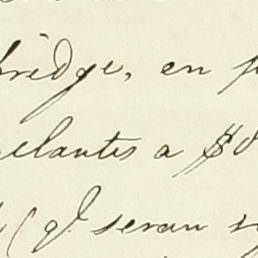 bridge, en p
elantes a $8
(qᵉ seran s